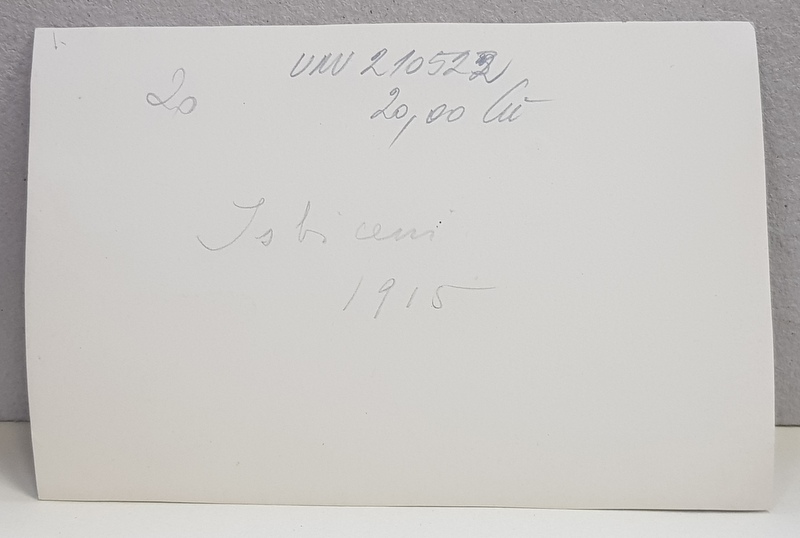 UNV 210522
20
20,00 Lii
Isbiceni
1915